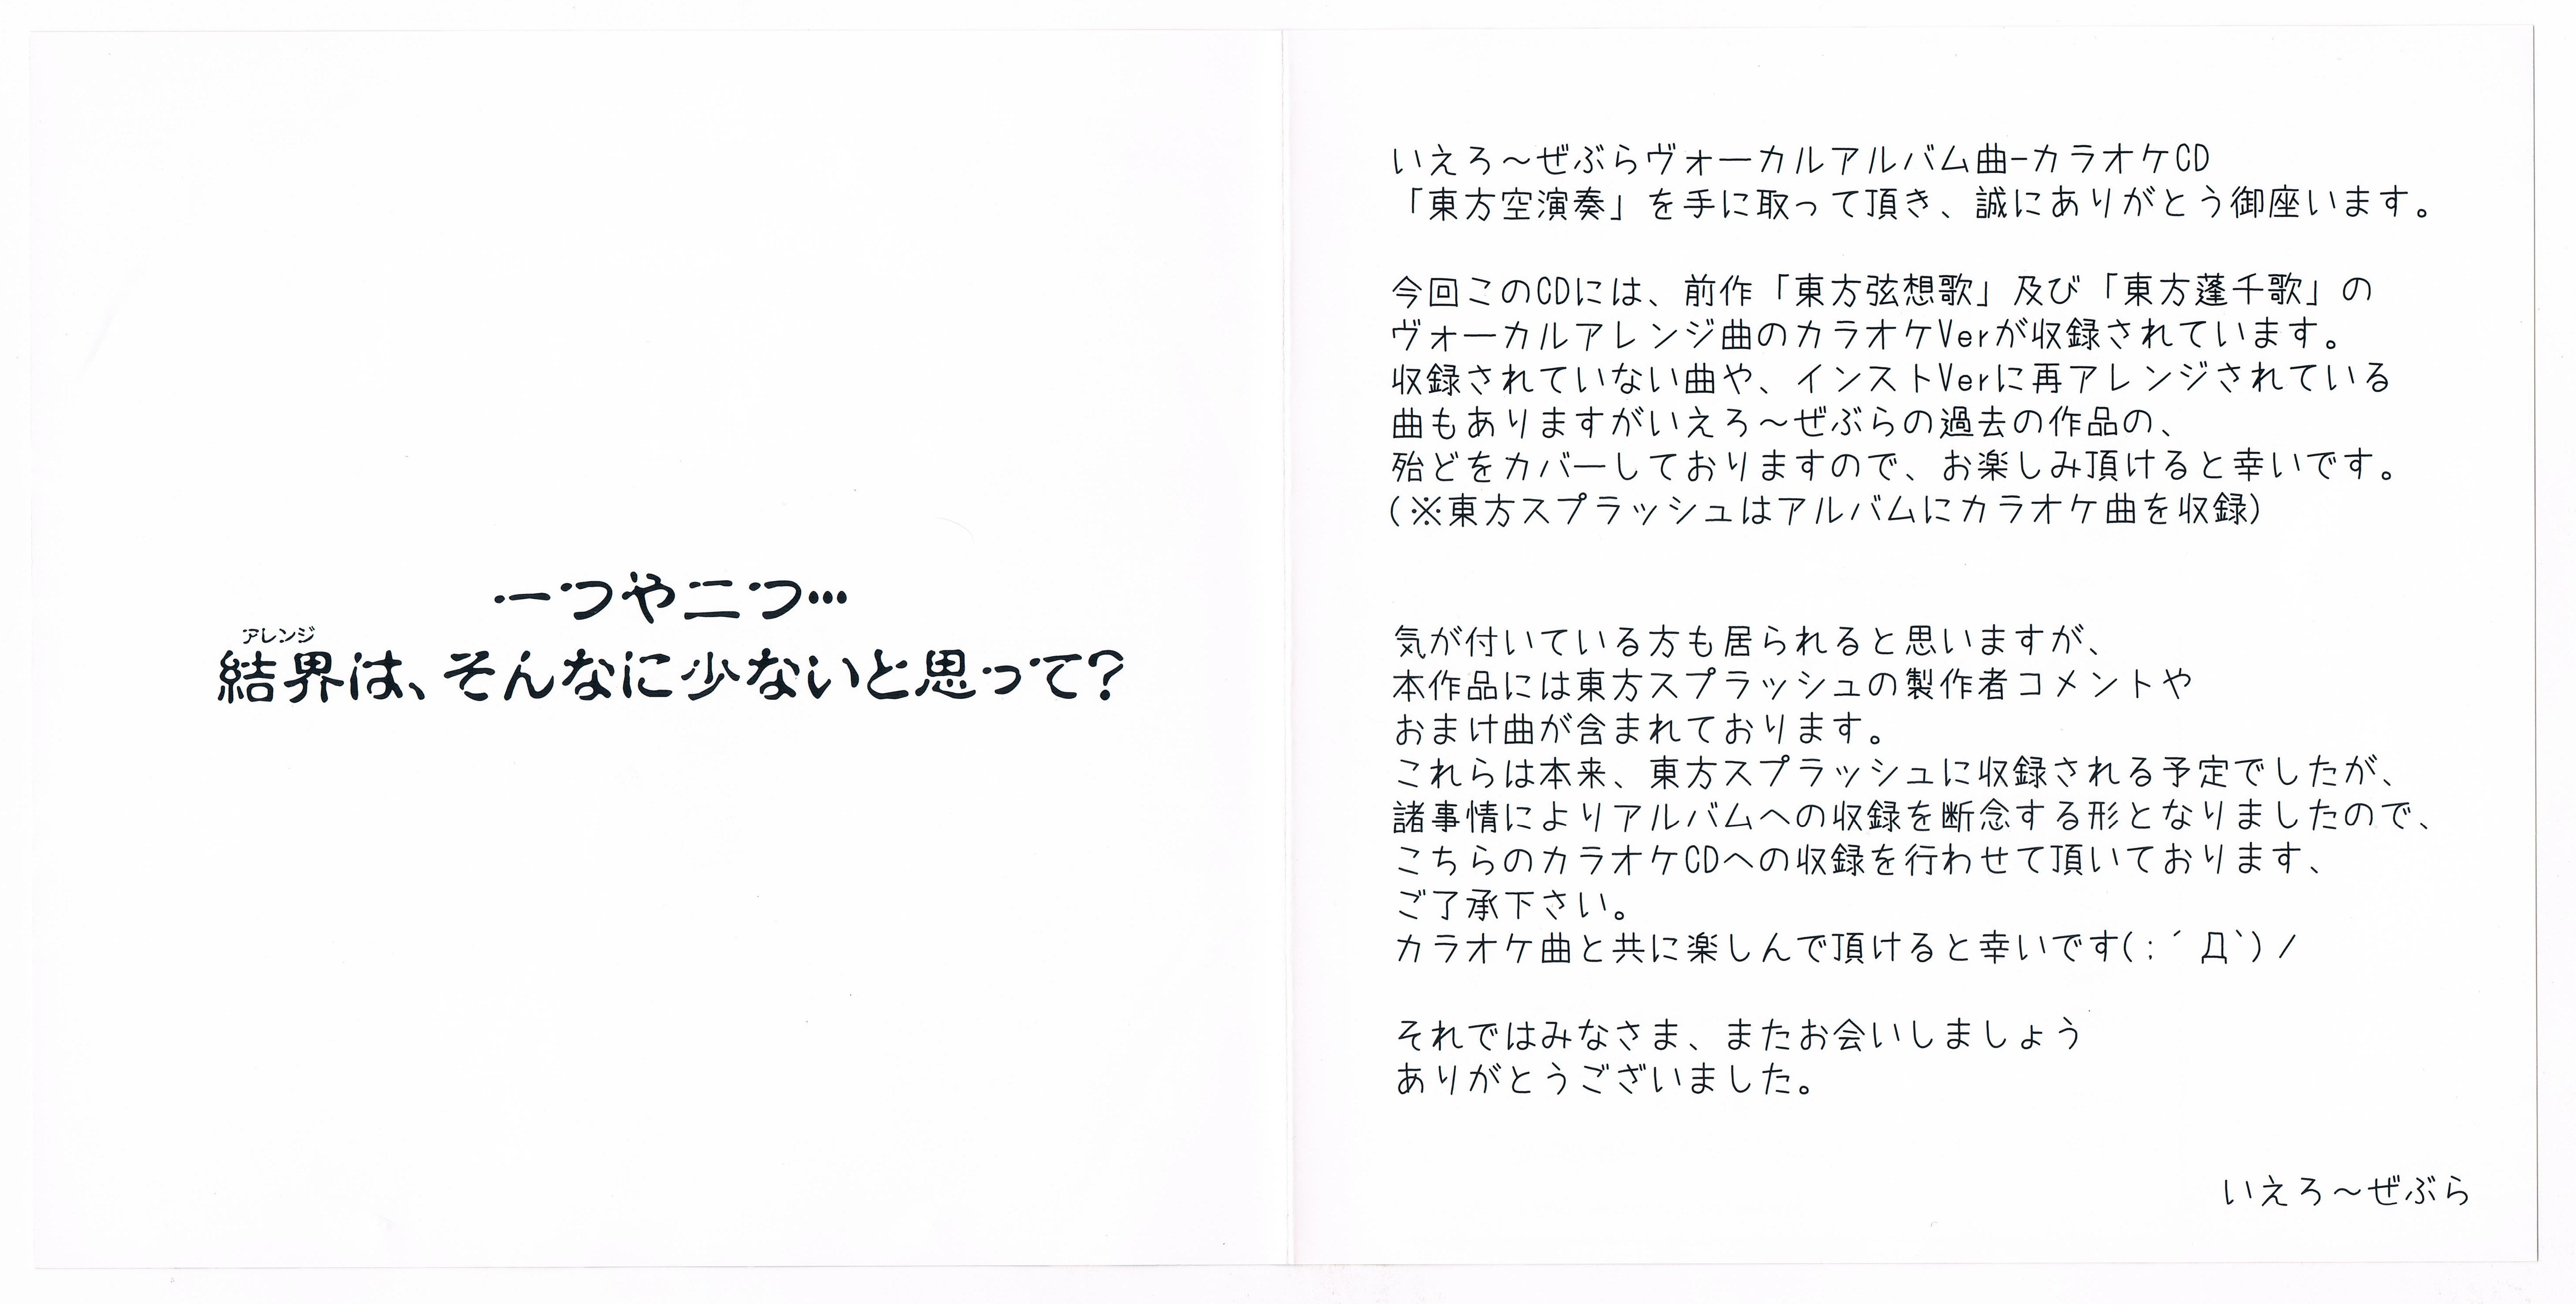 一つや二つ…
アレンジ
結界は、そんなに少ないと思って?
いえろ～ぜぶらヴォーカルアルバム曲-カラオケCD
「東方空演奏」を手に取って頂き、誠にありがとう御座います。
今回このCDには、前作「東方弦想歌」及び「東方蓬千歌」の
ヴォーカルアレンジ曲のカラオケVerが収録されています。
収録されていない曲や、インストVerに再アレンジされている
曲もありますがいえろ～ぜぶらの過去の作品の、
殆どをカバーしておりますので、お楽しみ頂けると幸いです。
(※東方スプラッシュはアルバムにカラオケ曲を収録)
気が付いている方も居られると思いますが、
本作品には東方スプラッシュの製作者コメントや
おまけ曲が含まれております。
これらは本来、東方スプラッシュに収録される予定でしたが、
諸事情によりアルバムへの収録を断念する形となりましたので、
こちらのカラオケCDへの収録を行わせて頂いております、
ご了承下さい。
カラオケ曲と共に楽しんで頂けると幸いです(;´Д`)/
それではみなさま、またお会いしましょう
ありがとうございました。
いえろ～ぜぶら